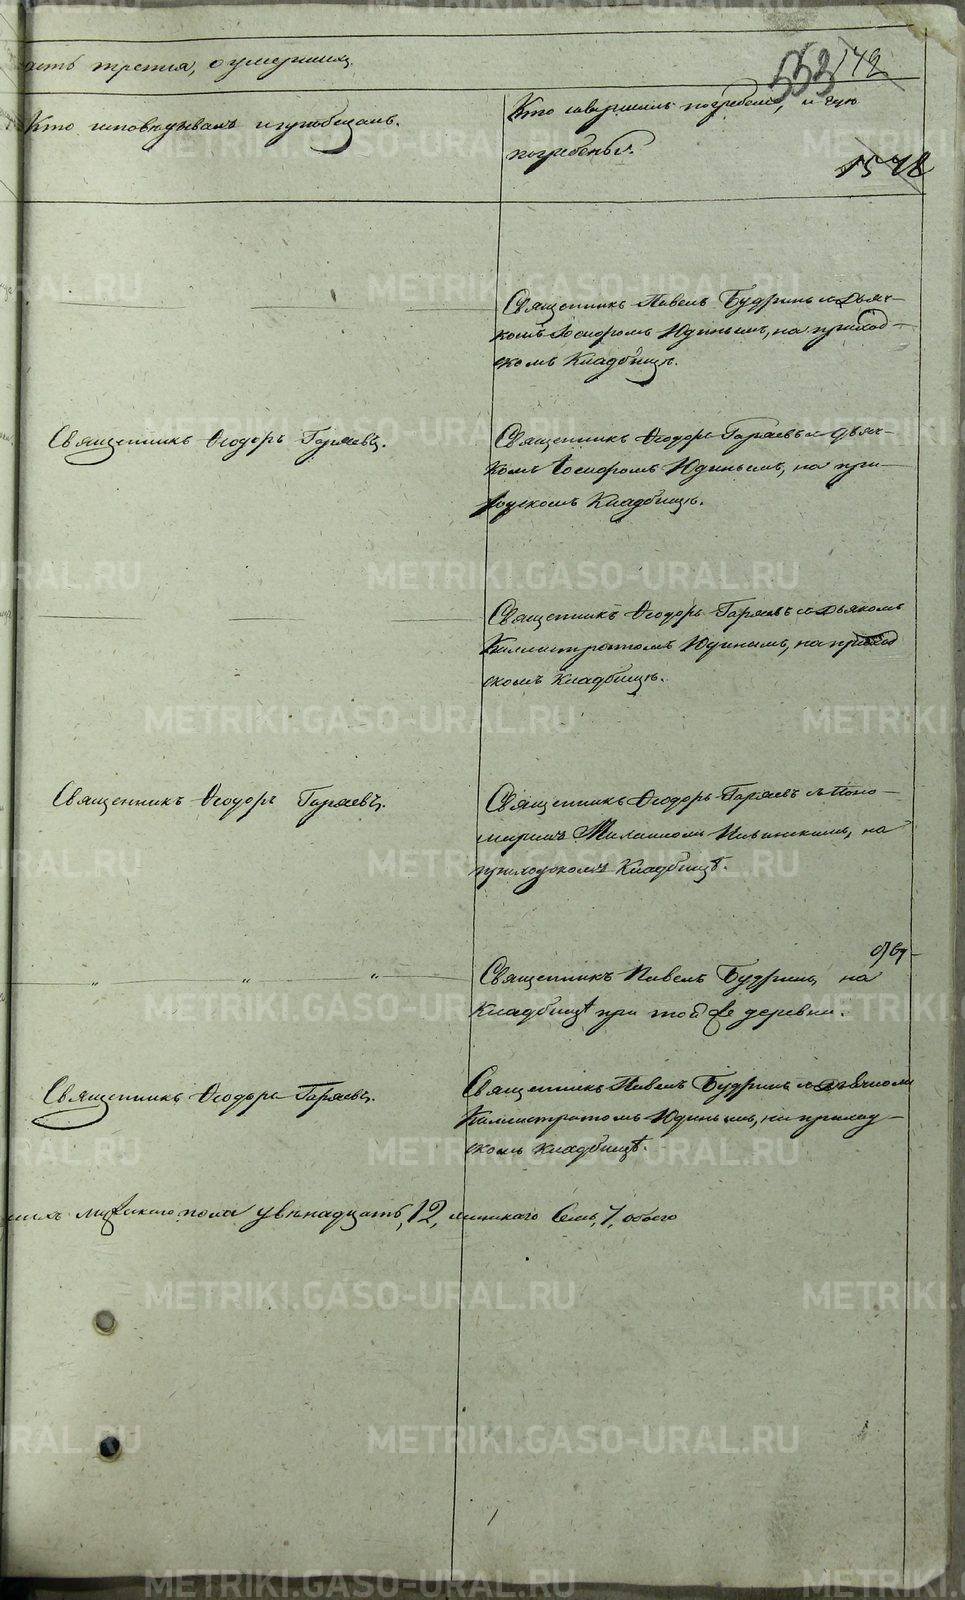 асть третья, о умершихъ.
553
142
Кто исповѣдывалъ и пріобщалъ.
Кто совершалъ погребеніе, и гдѣ
погребены.
1578
Священникъ Павелъ Будринъ съ дьяч-
комъ Іосифомъ Юдинымъ, на приход-
скомъ Кладбищѣ.
Священникъ Ѳеодоръ Гаряевъ.
Священникъ Ѳеодоръ Гаряевъ съ дьяч-
комъ Іосифомъ Юдинымъ, на при-
ходскомъ Кладбищѣ.
Священникъ Ѳеодоръ Гаряевъ съ дьякомъ
Каллистратомъ Юдинымъ, на приход
скомъ Кладбищѣ.
Священникъ Ѳеодоръ Гаряевъ.
Священникъ Ѳеодоръ Гаряевъ съ Поно-
маремъ на
приходскомъ Кладбищѣ.
Священникъ Павелъ Будринъ, на
Кладбищѣ при той же деревни.
Священникъ Ѳеодоръ Гаряевъ.
Священникъ Павелъ Будринъ съ дьячкомъ
Каллистратомъ Юдинымъ, на приход-
скомъ Кладбищѣ.
шихъ мужескаго пола двѣнадцать, 12, женскаго Семь, 7, обоего
METRIKI.GASO-URAL.RU